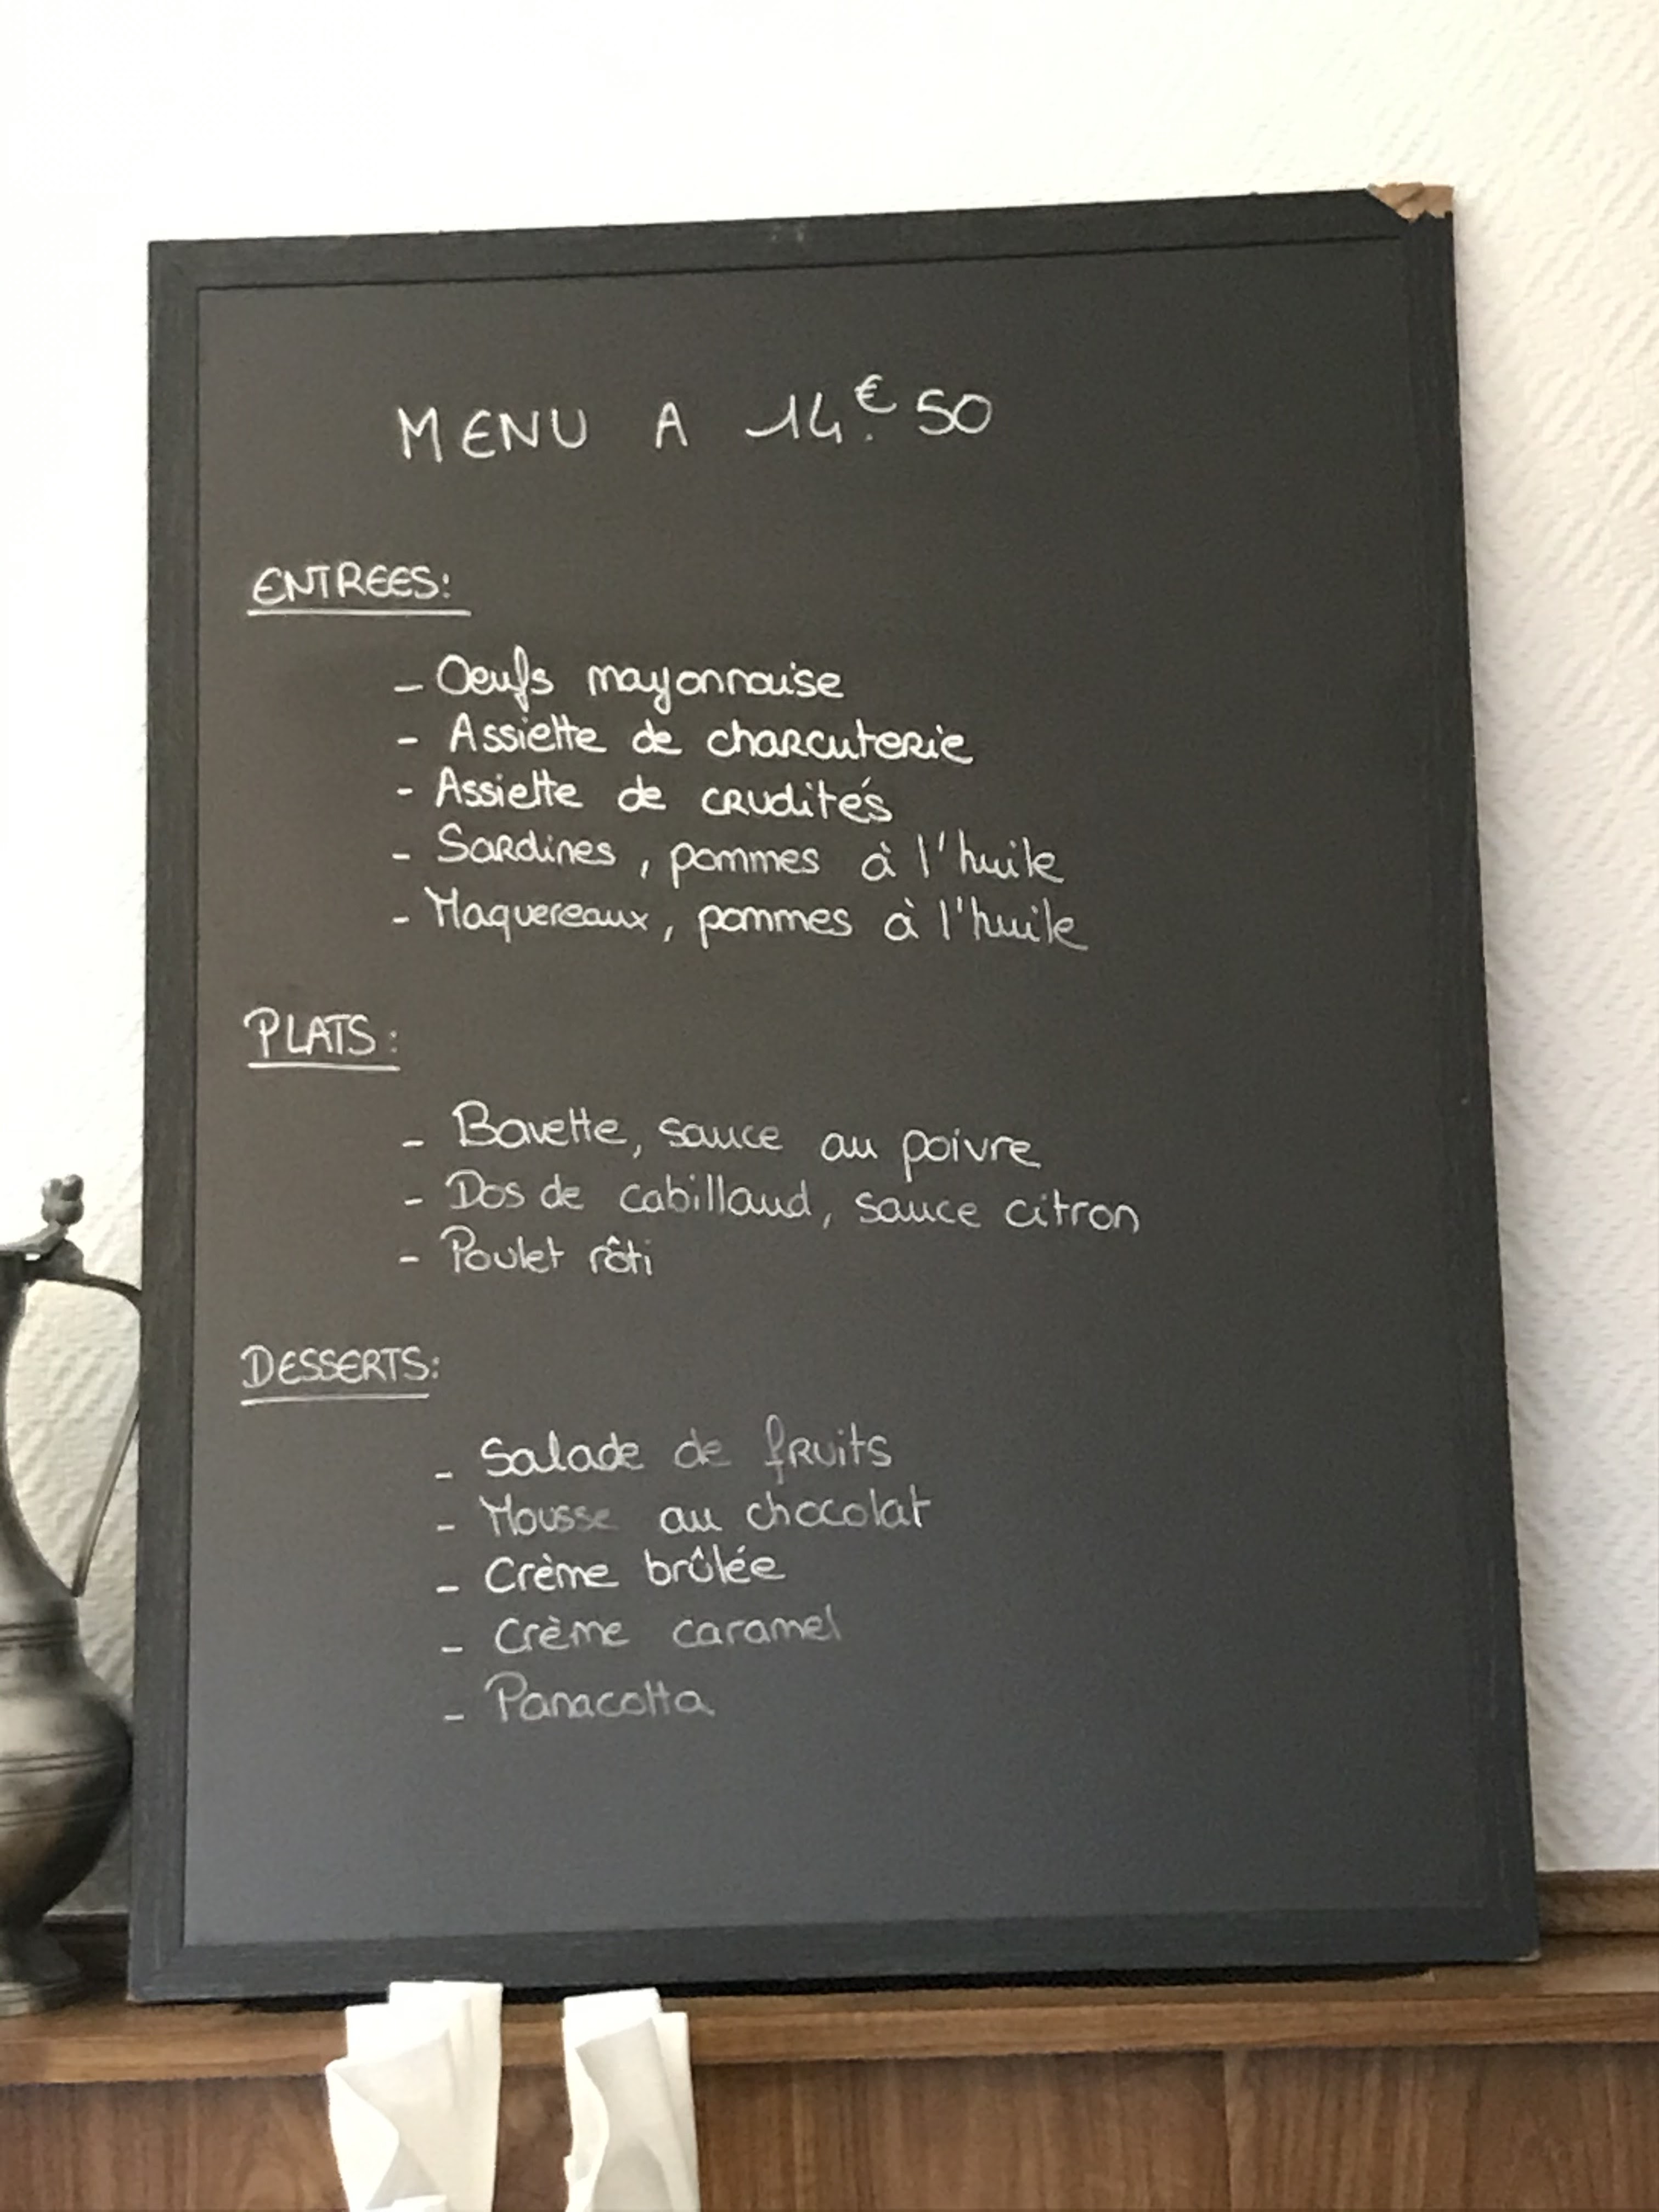 MENU A 14.€50
ENTREES:
- Oeufs mayonnaise
- Assiette de charcuterie
- Assiette de crudités
- Sardines, pommes à l'huile
- Maquereaux, pommes à l'huile
PLATS:
- Bavette, sauce au poivre
- Dos de cabillaud, sauce citron
- Poulet rôti
DESSERTS:
- Salade de fruits
- Mousse au chocolat
- Crème brûlée
- Crème caramel
- Panacotta